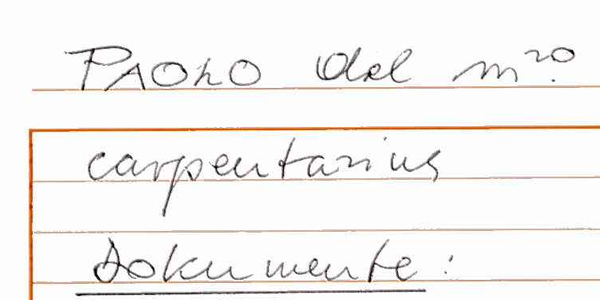 PAOLO del m.ro
carpentarius
Dokumente: